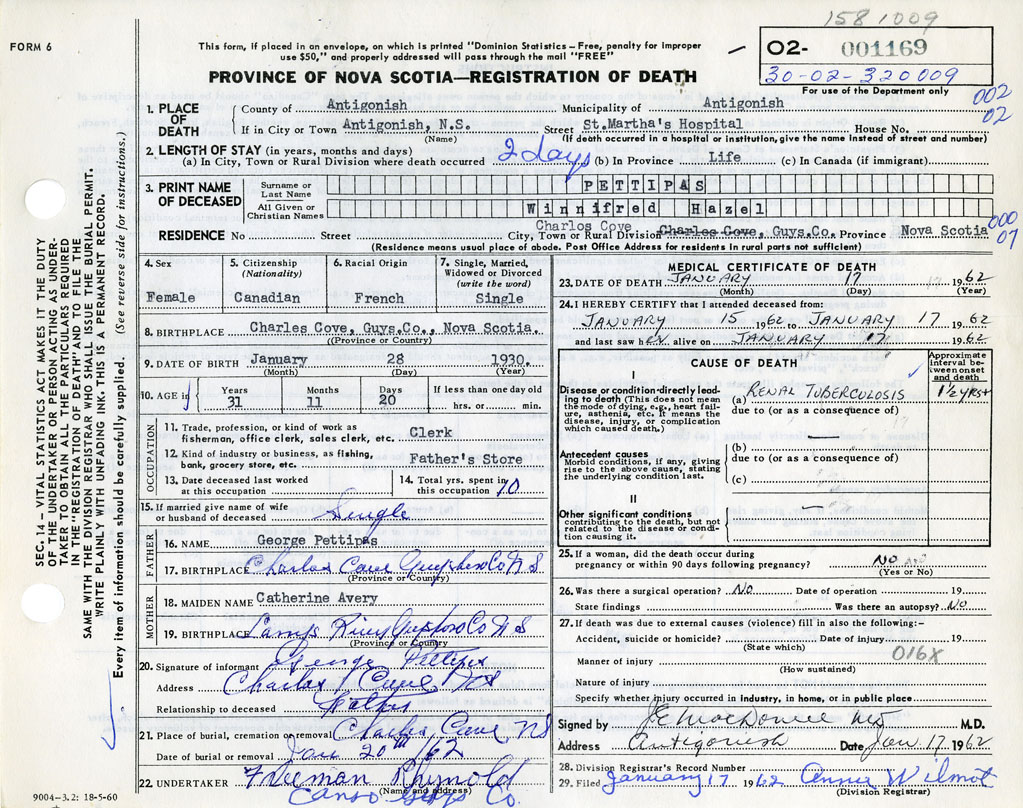 1581009
FORM 6
This form, if placed in an envelope, on which is printed "Dominion Statistics – Free, penalty for improper
use $50," and properly addressed will pass through the mail "FREE"
02- 001169
30-02-320009
For use of the Department only
PROVINCE OF NOVA SCOTIA—REGISTRATION OF DEATH
002
02
1. PLACE OF DEATH
County of Antigonish Municipality of Antigonish
If in City or Town Antigonish, N.S. Street St.Martha's Hospital House No.
(Name) (If death occurred in a hospital or institution, give the name instead of street and number)
2. LENGTH OF STAY (in years, months and days)
(a) In City, Town or Rural Division where death occurred 2 days (b) In Province Life (c) In Canada (if immigrant)
3. PRINT NAME OF DECEASED
Surname or Last Name PETTIPAS
All Given or Christian Names Winnifred Hazel
Charlos Cove
RESIDENCE No Street City, Town or Rural Division Charlos Cove, Guys.Co. Province Nova Scotia
000
07
(Residence means usual place of abode. Post Office Address for residents in rural parts not sufficient)
4. Sex Female
5. Citizenship (Nationality) Canadian
6. Racial Origin French
7. Single, Married, Widowed or Divorced (write the word) Single
8. BIRTHPLACE Charles Cove, Guys.Co., Nova Scotia.
(Province or Country)
9. DATE OF BIRTH January 28 1930.
(Month) (Day) (Year)
10. AGE in Years 31 Months 11 Days 20 If less than one day old hrs. or min.
OCCUPATION
11. Trade, profession, or kind of work as
fisherman, office clerk, sales clerk, etc. Clerk
12. Kind of industry or business, as fishing,
bank, grocery store, etc. Father's Store
13. Date deceased last worked
at this occupation
14. Total yrs. spent in
this occupation 10
15. If married give name of wife
or husband of deceased Single
FATHER
16. NAME George Pettipas
17. BIRTHPLACE Charlos Cove Guysboro Co N S
(Province or Country)
MOTHER
18. MAIDEN NAME Catherine Avery
19. BIRTHPLACE Larrys River Guysboro Co N S
(Province or Country)
20. Signature of informant George Pettipas
Address Charlos Cove NS
Relationship to deceased Father
21. Place of burial, cremation or removal Charlos Cove NS
Date of burial or removal Jan 20th /62
22. UNDERTAKER Freeman Rhynold
(Name and address)
Canso Guys Co.
MEDICAL CERTIFICATE OF DEATH
23. DATE OF DEATH JANUARY 17 1962
(Month) (Day) (Year)
24. I HEREBY CERTIFY that I attended deceased from:
JANUARY 15 1962 to JANUARY 17 1962
and last saw her alive on JANUARY 17 1962
CAUSE OF DEATH
Approximate interval between onset and death
I
Disease or condition directly leading to death (This does not mean the mode of dying, e.g., heart failure, asthenia, etc. It means the disease, injury, or complication which caused death.)
(a) RENAL TUBERCULOSIS 1½ YRS+
due to (or as a consequence of)
Antecedent causes
Morbid conditions, if any, giving rise to the above cause, stating the underlying condition last.
(b)
due to (or as a consequence of)
(c)
II
Other significant conditions
contributing to the death, but not related to the disease or condition causing it.
25. If a woman, did the death occur during
pregnancy or within 90 days following pregnancy? NO
(Yes or No)
26. Was there a surgical operation? NO Date of operation 19
State findings Was there an autopsy? NO
27. If death was due to external causes (violence) fill in also the following:-
Accident, suicide or homicide? Date of injury 19
(State which)
016X
Manner of injury
(How sustained)
Nature of injury
Specify whether injury occurred in industry, in home, or in public place
Signed by M.D.
Address Antigonish Date Jan 17 1962
28. Division Registrar's Record Number
29. Filed January 17 1962 Annie Wilmot
(Division Registrar)
SEC. 14 – VITAL STATISTICS ACT MAKES IT THE DUTY
OF THE UNDERTAKER OR PERSON ACTING AS UNDER-
TAKER TO OBTAIN ALL THE PARTICULARS REQUIRED
IN THE "REGISTRATION OF DEATH" AND TO FILE THE
SAME WITH THE DIVISION REGISTRAR WHO SHALL ISSUE THE BURIAL PERMIT.
WRITE PLAINLY WITH UNFADING INK. THIS IS A PERMANENT RECORD.
Every item of information should be carefully supplied. (See reverse side for instructions.)
9004-3.2: 18-5-60